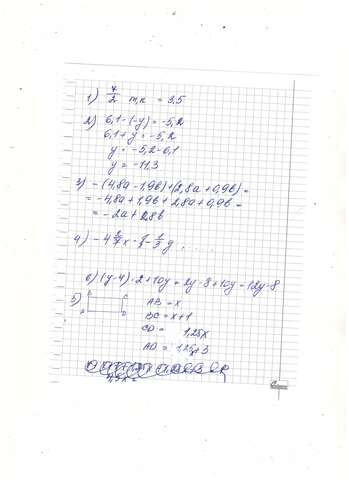 1) 7/2 т.к = 3,5
2) 6,1-(-y) = -5,2
6,1+y = -5,2
y = -5,2-6,1
y = -11,3
3) -(4,8a-1,9b)+(2,8a+0,9b) =
= -4,8a+1,9b+2,8a+0,9b =
= -2a+2,8b
6) (y-4)·2+10y = 2y-8+10y = 12y-8
5) B C
A D
AB = x
BC = x+1
CD = 1,25x
AD = 1,25x+3